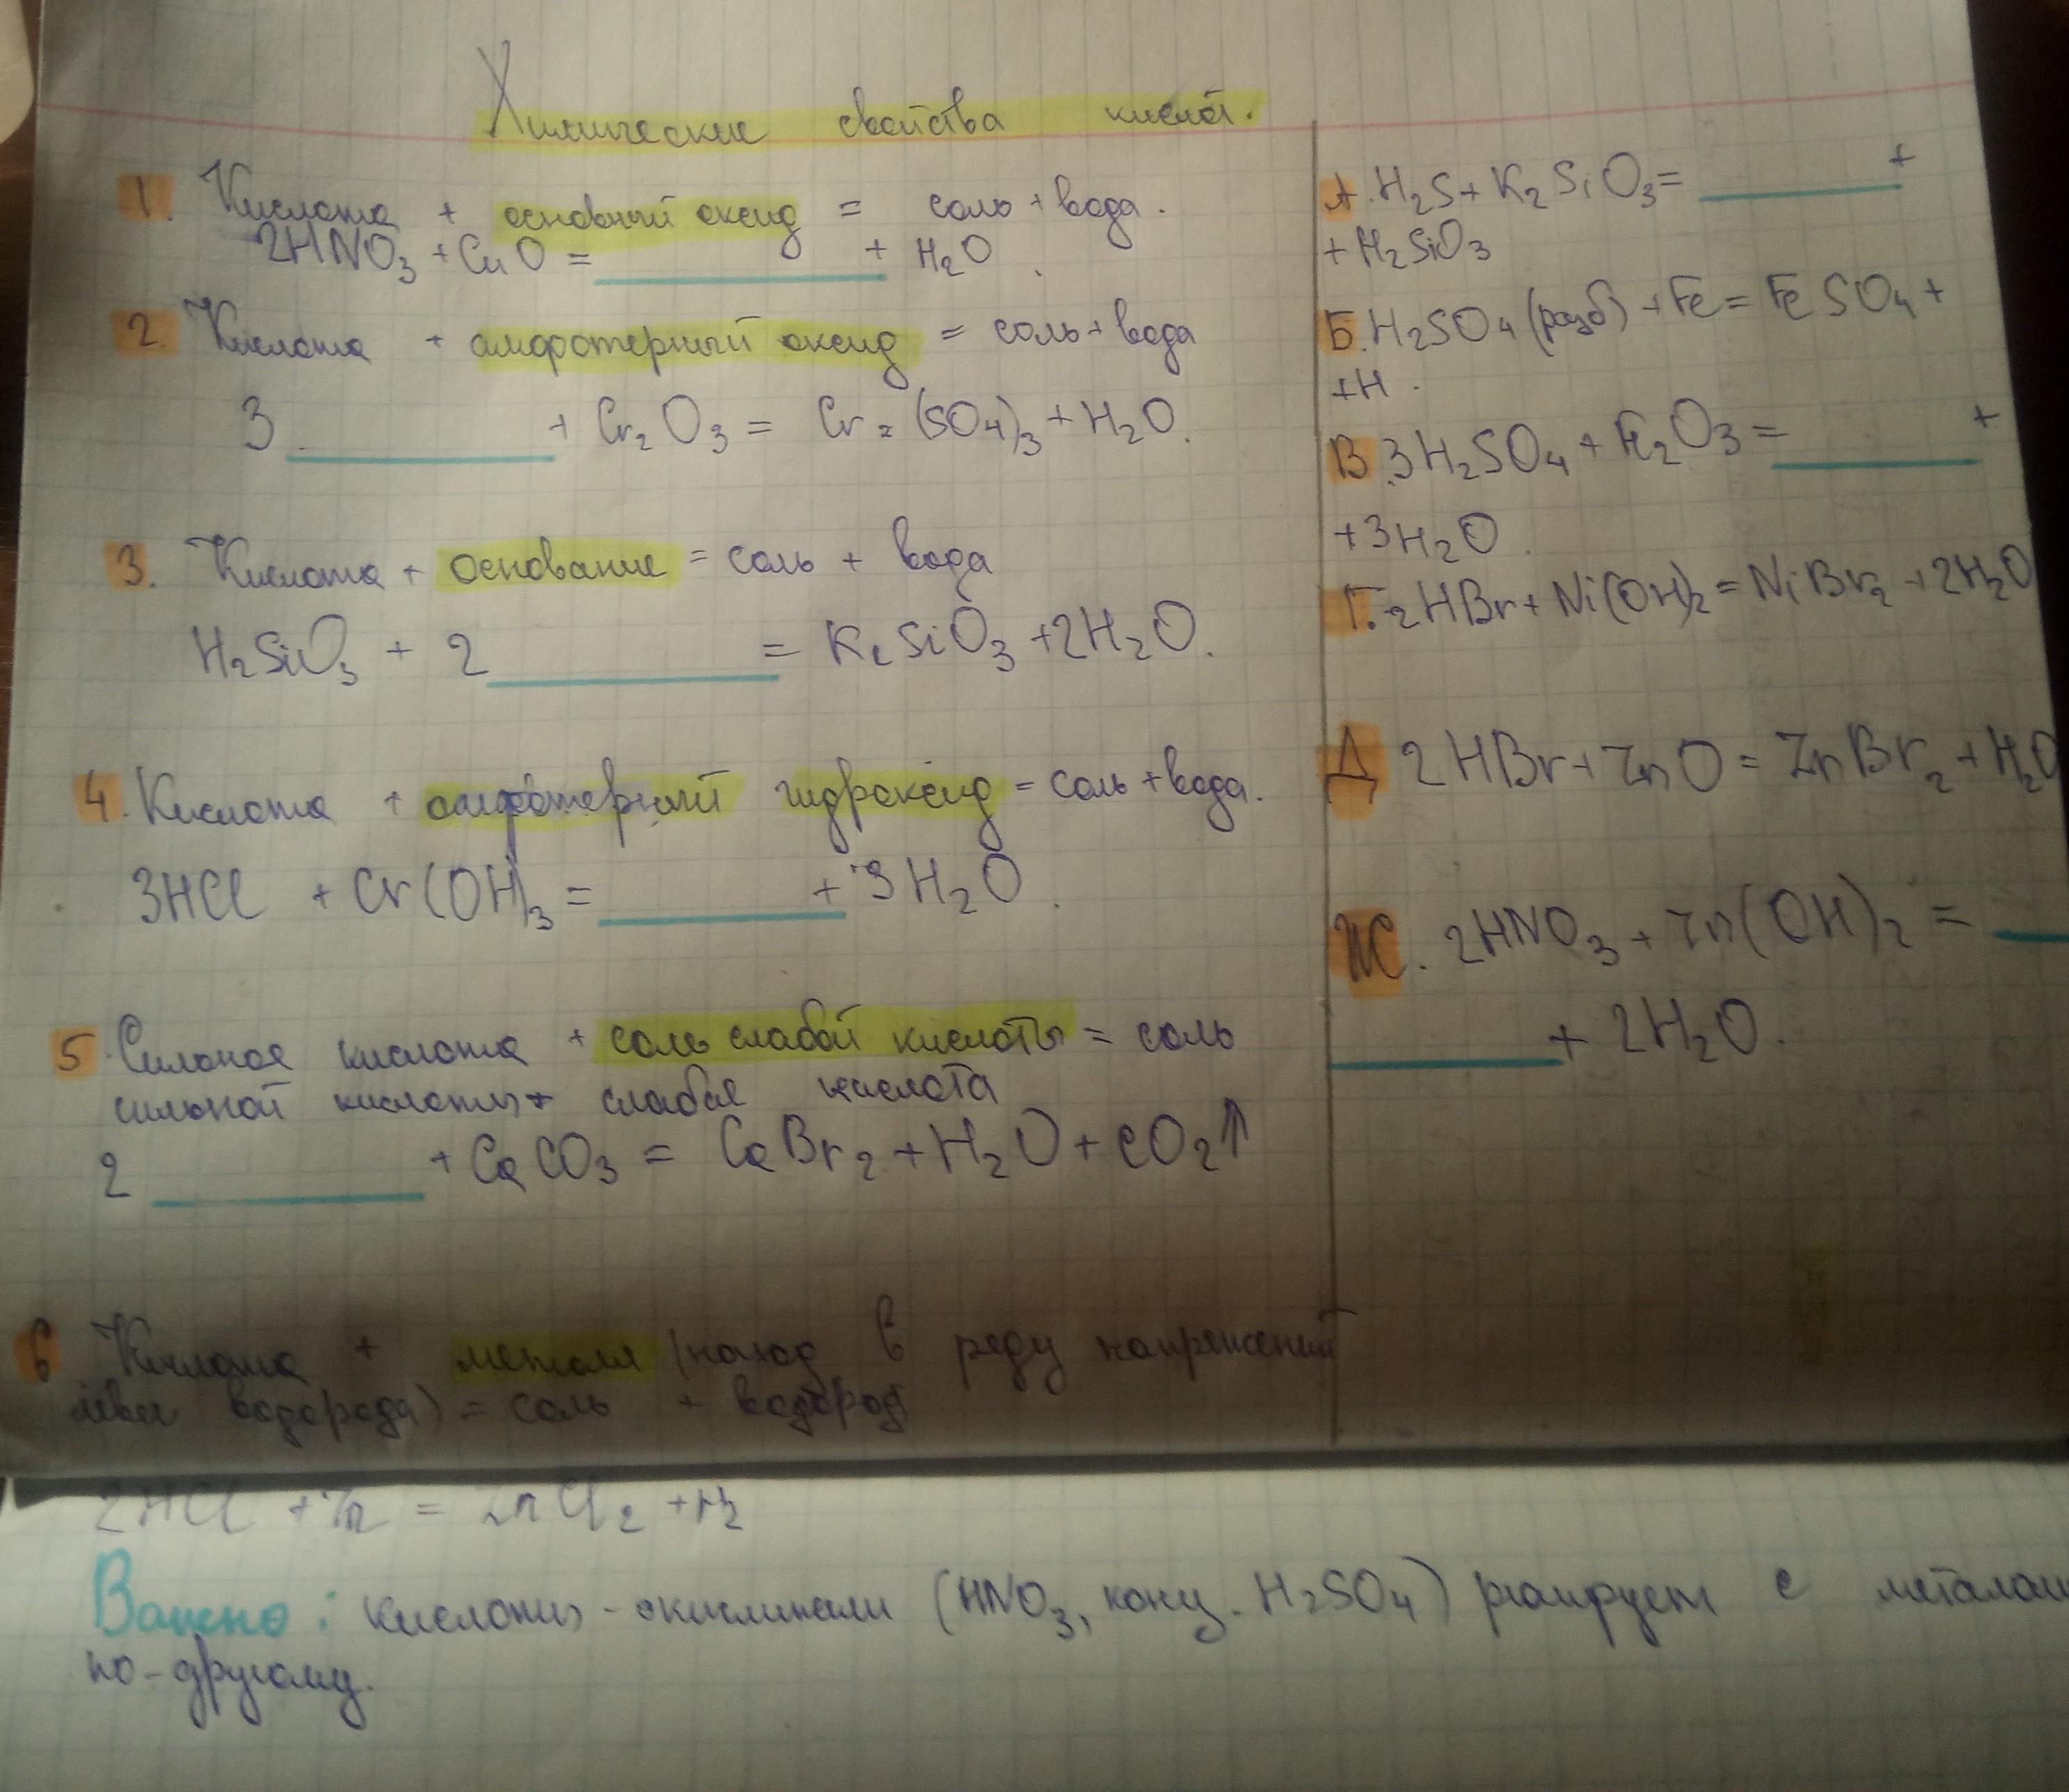 Химические свойства кислот.
1. Кислота + основный оксид = соль + вода.
2HNO3 + CuO = ________ + H2O.
2. Кислота + амфотерный оксид = соль + вода
3 ________ + Cr2O3 = Cr2(SO4)3 + H2O.
3. Кислота + основание = соль + вода
H2SiO3 + 2 ________ = K2SiO3 + 2H2O.
4. Кислота + амфотерный гидроксид = соль + вода.
3HCl + Cr(OH)3 = ________ + 3H2O.
5. Сильная кислота + соль слабой кислоты = соль
сильной кислоты + слабая кислота
2 ________ + CaCO3 = CaBr2 + H2O + CO2↑
6 Кислота + металл (наход в ряду напряжений
левее водорода) = соль + водород
2HCl + Zn = ZnCl2 + H2
Важно: кислоты-окислители (HNO3, конц. H2SO4) реагирует с металам
по-другому.
А. H2S + K2SiO3 = ________ +
+ H2SiO3
Б. H2SO4 (разб) + Fe = FeSO4 +
+ H.
В. 3H2SO4 + Fe2O3 = ________ +
+ 3H2O.
Г. 2HBr + Ni(OH)2 = NiBr2 + 2H2O
Д 2HBr + ZnO = ZnBr2 + H2O
Ж. 2HNO3 + Zn(OH)2 = __
________ + 2H2O.